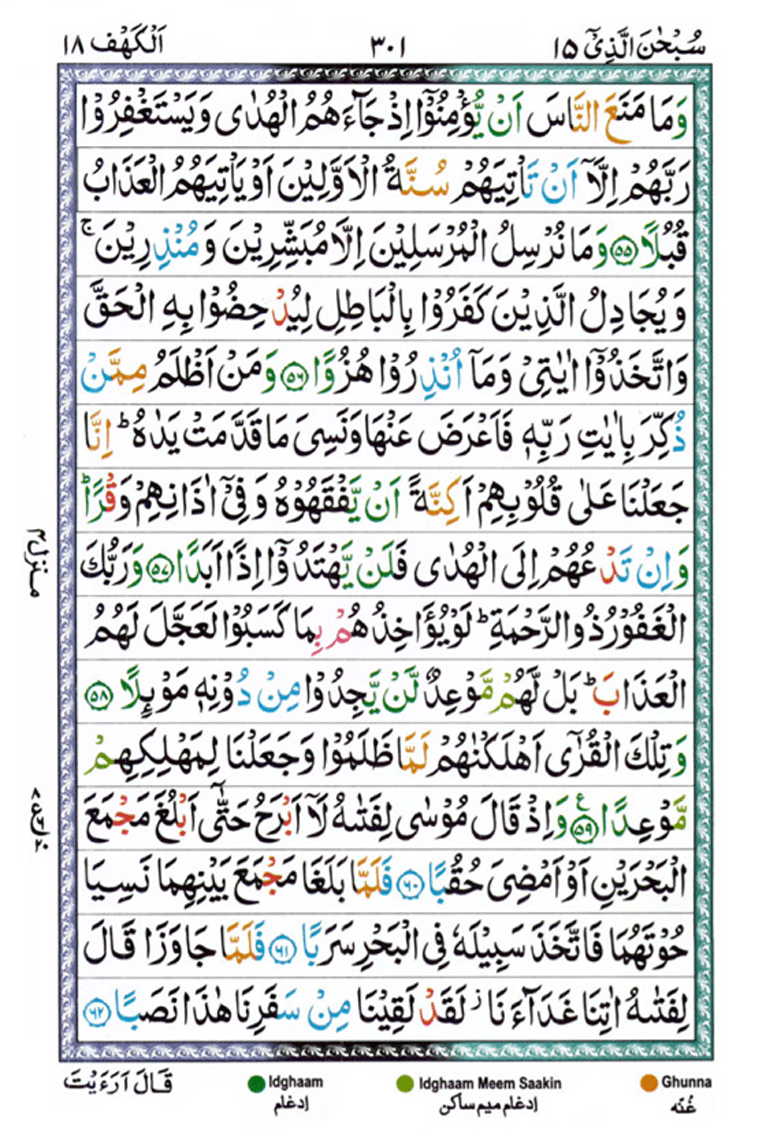 سُبۡحٰنَ الَّذِىۡۤ ١٥ ٣٠١ اَلۡكَهۡف ١٨
وَمَا مَنَعَ النَّاسَ اَنۡ يُّؤۡمِنُوۡۤا اِذۡ جَآءَهُمُ الۡهُدٰى وَيَسۡتَغۡفِرُوۡا
رَبَّهُمۡ اِلَّاۤ اَنۡ تَاۡتِيَهُمۡ سُنَّةُ الۡاَوَّلِيۡنَ اَوۡ يَاۡتِيَهُمُ الۡعَذَابُ
قُبُلًا ﴿٥٥﴾ وَمَا نُرۡسِلُ الۡمُرۡسَلِيۡنَ اِلَّا مُبَشِّرِيۡنَ وَمُنۡذِرِيۡنَ ۚ
وَيُجَادِلُ الَّذِيۡنَ كَفَرُوۡا بِالۡبَاطِلِ لِيُدۡحِضُوۡا بِهِ الۡحَقَّ
وَاتَّخَذُوۡۤا اٰيٰتِىۡ وَمَاۤ اُنۡذِرُوۡا هُزُوًا ﴿٥٦﴾ وَمَنۡ اَظۡلَمُ مِمَّنۡ
ذُكِّرَ بِاٰيٰتِ رَبِّهٖ فَاَعۡرَضَ عَنۡهَا وَنَسِىَ مَا قَدَّمَتۡ يَدٰهُ ؕ اِنَّا
جَعَلۡنَا عَلٰى قُلُوۡبِهِمۡ اَكِنَّةً اَنۡ يَّفۡقَهُوۡهُ وَفِىۡۤ اٰذَانِهِمۡ وَقۡرًا ؕ
وَاِنۡ تَدۡعُهُمۡ اِلَى الۡهُدٰى فَلَنۡ يَّهۡتَدُوۡۤا اِذًا اَبَدًا ﴿٥٧﴾ وَرَبُّكَ
الۡغَفُوۡرُ ذُو الرَّحۡمَةِ ؕ لَوۡ يُؤَاخِذُهُمۡ بِمَا كَسَبُوۡا لَعَجَّلَ لَهُمُ
الۡعَذَابَ ؕ بَلۡ لَّهُمۡ مَّوۡعِدٌ لَّنۡ يَّجِدُوۡا مِنۡ دُوۡنِهٖ مَوۡئِلًا ﴿٥٨﴾
وَتِلۡكَ الۡقُرٰٓى اَهۡلَكۡنٰهُمۡ لَمَّا ظَلَمُوۡا وَجَعَلۡنَا لِمَهۡلِكِهِمۡ
مَّوۡعِدًا ﴿٥٩﴾ ع وَاِذۡ قَالَ مُوۡسٰى لِفَتٰٮهُ لَاۤ اَبۡرَحُ حَتّٰۤى اَبۡلُغَ مَجۡمَعَ
الۡبَحۡرَيۡنِ اَوۡ اَمۡضِىَ حُقُبًا ﴿٦٠﴾ فَلَمَّا بَلَغَا مَجۡمَعَ بَيۡنِهِمَا نَسِيَا
حُوۡتَهُمَا فَاتَّخَذَ سَبِيۡلَهٗ فِى الۡبَحۡرِ سَرَبًا ﴿٦١﴾ فَلَمَّا جَاوَزَا قَالَ
لِفَتٰٮهُ اٰتِنَا غَدَآءَنَا ز لَقَدۡ لَقِيۡنَا مِنۡ سَفَرِنَا هٰذَا نَصَبًا ﴿٦٢﴾
منزل ٤
قَالَ اَرَءَيۡتَ
Idghaam
إدغام
Idghaam Meem Saakin
إدغام ميم ساكن
Ghunna
غُنّه